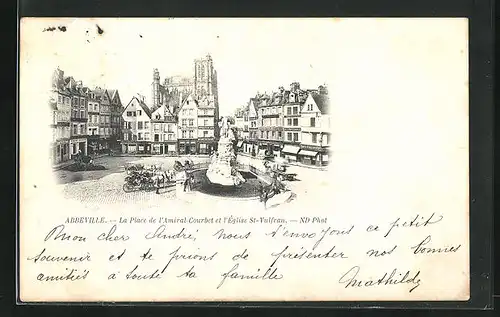 ABBEVILLE. — La Place de l'Amiral-Courbet et l'Église St-Vulfran. — ND Phot
Mon cher André, nous t'envoyons ce petit
souvenir et te prions de présenter nos bonnes
amitiés à toute ta famille Mathilde